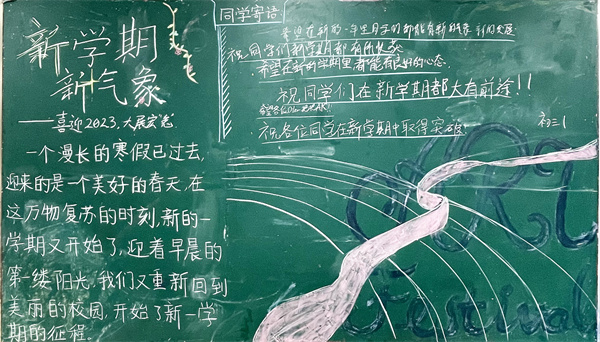 新学期
新气象
——喜迎2023,大展宏兔
一个漫长的寒假已过去,
迎来的是一个美好的春天,在
这万物复苏的时刻,新的一
学期又开始了,迎着早晨的
第一缕阳光,我们又重新回到
美丽的校园,开始了新一学
期的征程.
同学寄语
希望在新的一年里同学们都能有新的气象 新的发展
祝同学们新学期都有所收获
希望在新的学期里都能有良好的心态.
祝同学们在新学期都大有前途!!
祝各位同学在新学期中取得突破
初三1
ART
Festival